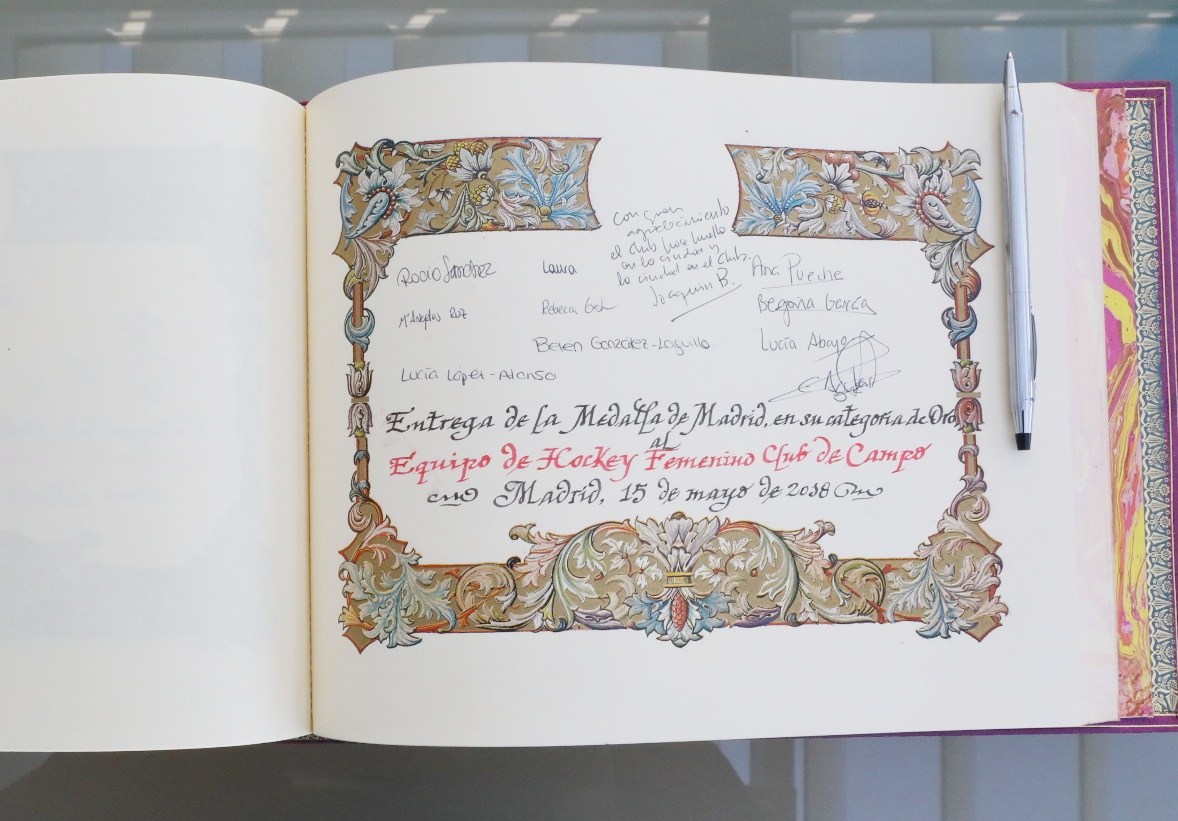 Con gran
agradecimiento
el club hace huella
en la ciudad y
la ciudad en el club.
Joaquín B.
Rocío Sánchez
Laura
Ana Pueche
Mª Ángeles Ruz
Rebeca
Begoña García
Belén González-Laguillo
Lucía Abajo
Lucía López-Alonso
Entrega de la Medalla de Madrid, en su categoría de Oro
al
Equipo de Hockey Femenino Club de Campo
Madrid, 15 de mayo de 2018